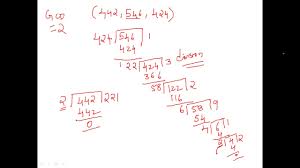 GCD (442, 546, 424)
=2
424 546 1
424
122 424 3 division
366
58 122 2
116
6 58 9
54
4 6 1
4
2 4 2
4
0
2 442 221
442
0